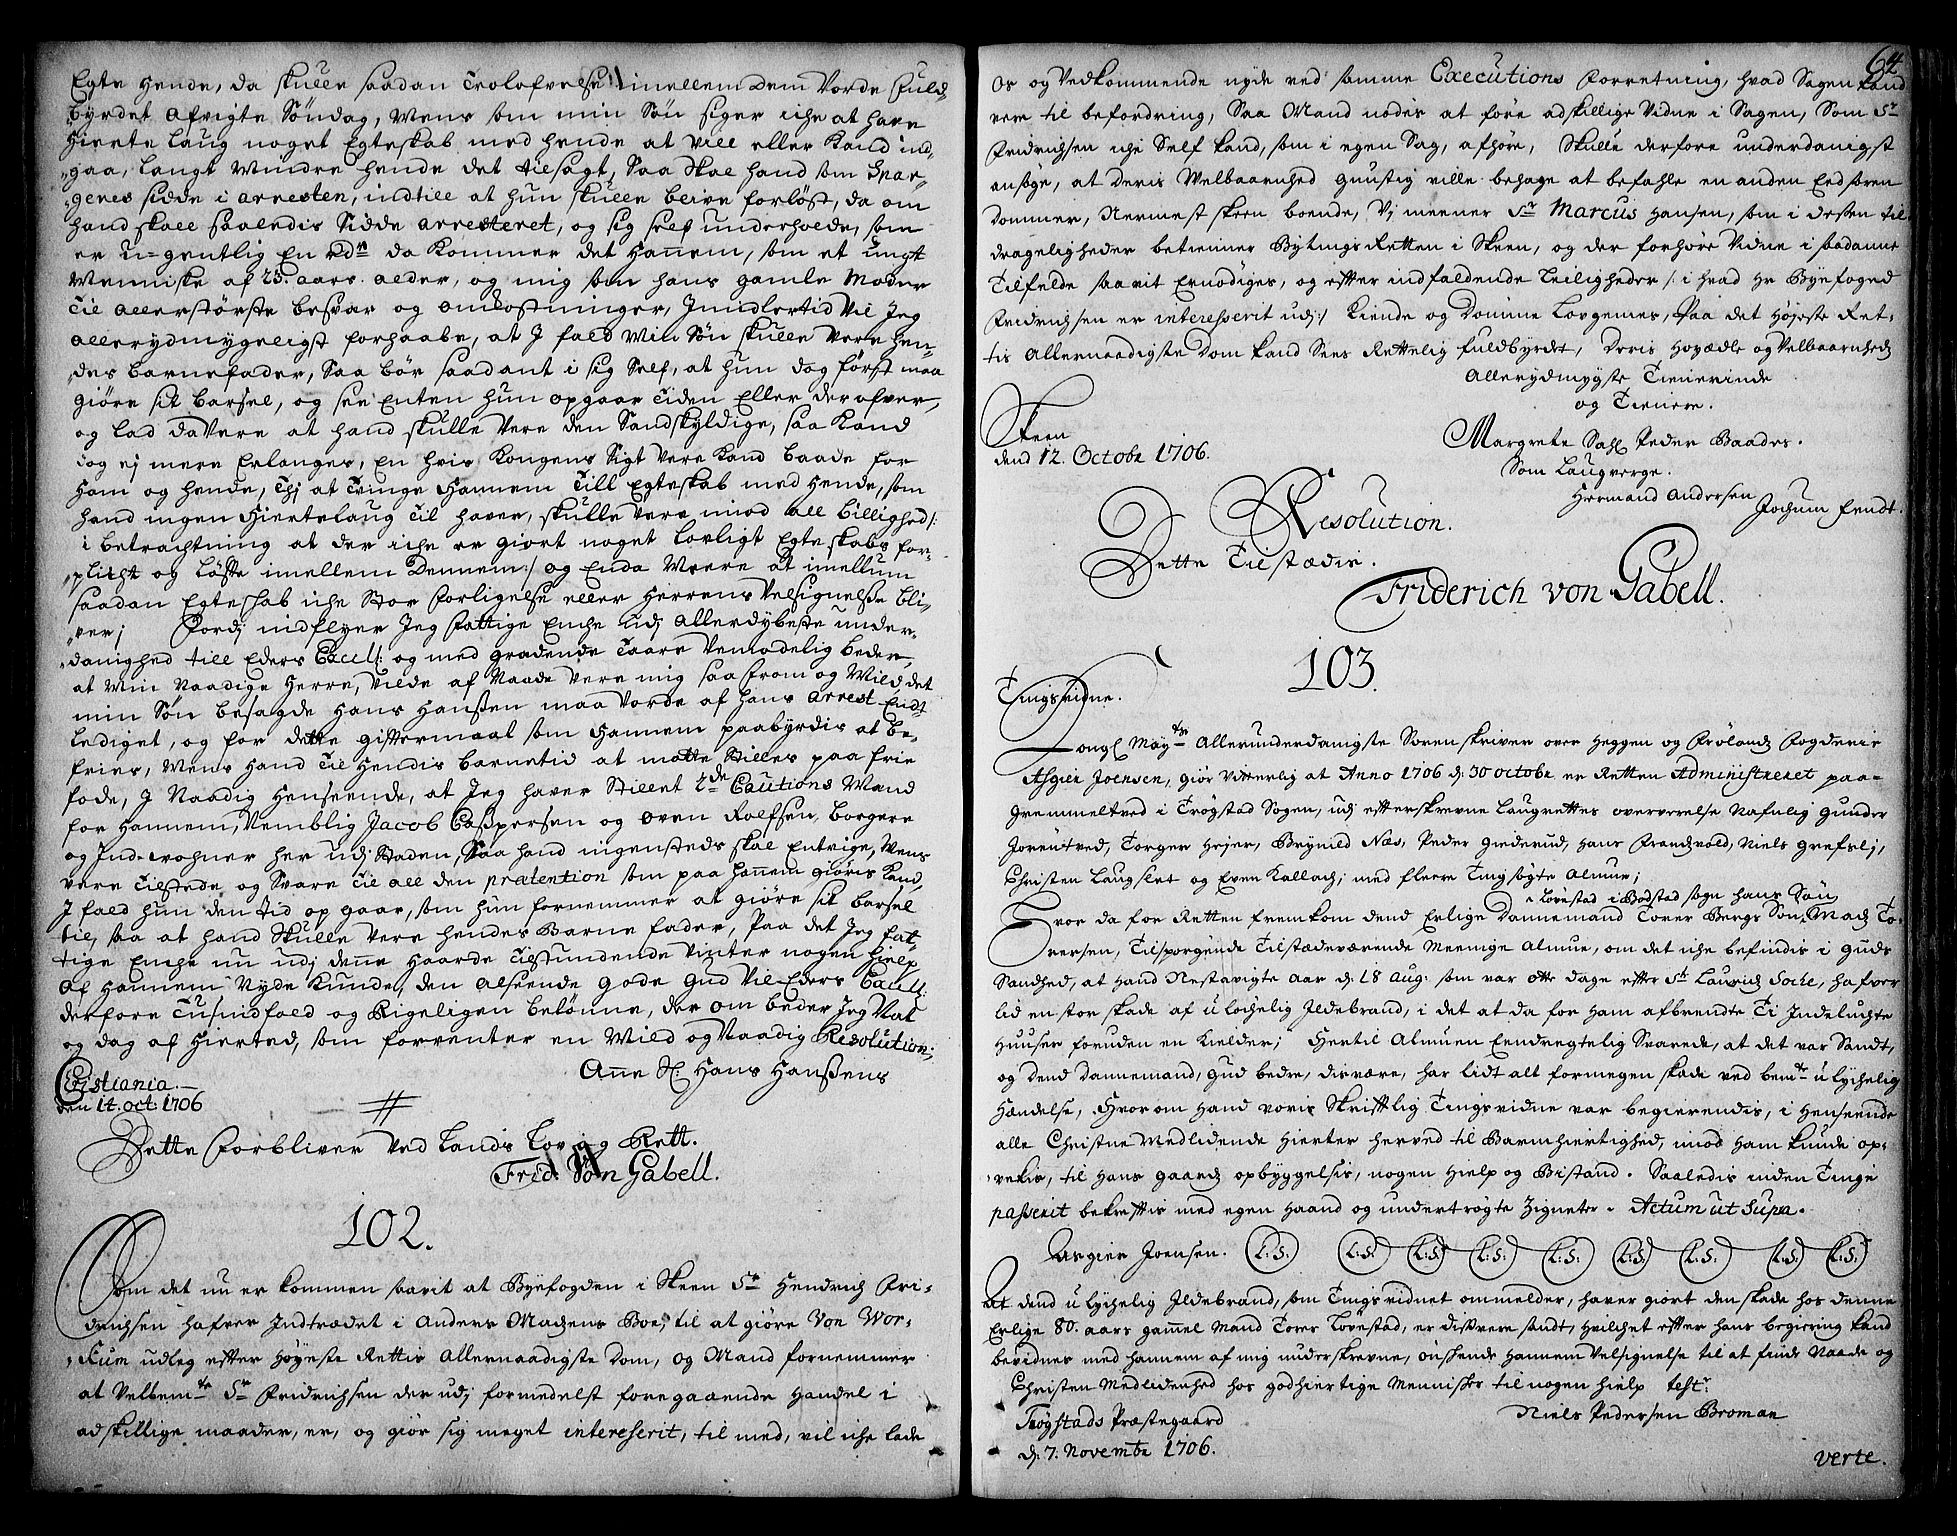 Egte hende, da skulle saadan Trolofvelse imellem dem vorde fuld-
byrdet afvigte Søndag, Mens som min Søn siger iche at have
hierte laug noget Egteskab med hende at ville eller kand ind-
gaa, langt mindre hende det tilsagt, Saa skal hand som Spar-
genes sidde i arresten, indtill at hun skulle blive forløst, da om
hand skall saalendis sidde arresteret, og sig self underholde, som
er u-gentlig En da kommer det hannem, som et ungt
Menniske af 25. aars alder, og mig som hans gamle Moder
til allerstørste besvær og omkostninger, Imidlertid vil Jeg
allerydmygeligst forhaabe, at J fald Min Søn skulle være hen-
des barnefader, Saa bør saadant i sig self, at hun dog først maa
giøre sit barsel, og see Enten hun opgaar tiden Eller derofver,
og lad da være at hand skulle være den Sandskyldige, saa kand
dog ej mere Erlanges, En hvis Kongens Sigt være kand baade for
ham og hende, Thj at tvinge hannem till Egteskab med hende, som
hand ingen hiertelaug til haver, skulle være imod all billighed /:
i betragtning at der iche er giort noget lovligt Egteskabs for-
plicht og løffte imellem dennem :/ og Enda Meere at imellum
saadan Egteskab iche stor forligelse eller Herrens velsignelsse bli-
ver; Fordj indflyer Jeg fattige Enche udj allerdybeste under-
danighed till Eders Excell: og med grædende taare vemodelig beder,
at Min Naadige Herre, vilde af Naade være mig saa from og Mild, det
min Søn besagde Hans Hanssen maa vorde af hans arrest Endt-
lediget, og for dette giftermaal som hannem paabyrdis at be-
fries, Mens hand til hendis barnetid at motte stilles paa frie
fode, J Naadig henseende, at Jeg haver stillet 2de Cautions Mænd
for hannem, Nemblig Jacob Casspersen og Oven Rolfsen, borgere
og Ind-wohner her udj Staden, Saa hand ingensteds skal Entvige, Mens
være tilstede og svare til all den prætention som paa hannem giøris kand,
J fald hun den tid op gaar, som hun fornemmer at giøre sit barsel
til, saa at hand skulle være hendes Barne fader, Paa det Jeg fat-
tige Enche nu udj denne haarde tilstundende vinter nogen hielp
af hannem Nyde kunde, den alseende gode Gud vil Eders Excell:
derfore tusindfold og Rigeligen belønne, der om beder Jeg Nat
og dag af hierted, som forventer en Mild og Naadig Resolution;
Anne Sl: Hans Hanssens
Christiania
den 14. oct: 1706
Dette forbliver ved Lands Lov og Rett.
Frid: Von Gabell.
102.
Som det nu er kommen saavit at Byefogden i Skeen Sr Hendrich Fri-
drichsen hafver Indtrædet i Anders Madsens Boe, til at giøre Von Wor-
kum udleg efter Høyeste Rettis Allernaadigste Dom, og Mand fornemmer
at Velbemte Sr Fridrichsen der udj formedelst foregaaende Handel i
adskillige maader, er, og giør sig meget interesserit, til med, vil iche lade
64
os og Vedkommende nyde ved samme Executions forretning, hvad Sagen kand
vere til befordring, Saa Mand nødes at føre adskillige Vidne i Sagen, Som Sr
Fridrichsen iche Self kand, som i egen Sag, afhøre, Skulle derfore underdanigst
ansøge, at Deris Velbaarnhed gunstig ville behage at befahle en anden Eedsoren
Dommer, Nermest Skeen boende, Vj meener Sr Marcus Hansen, som i dessen til-
drageligheder betienner Bytings Retten i Skeen, og der forhøre Vidne i saadanne
Tilfelde saavit Ernødiges, og efter indfaldende Leiligheder /: i hvad Hr Byefoged
Fridrichsen er interesserit udj :/ kiende og Domme Lovgemes, Paa det Højeste Ret-
tis Allernaadigste Dom kand Sees Rettelig fuldbyrdet, Deris Hoyædle og Velbaarnheds
Allerydmygste Tienerinde
og Tienere.
Skeen
dend 12. Octobr 1706.
Margrete Sahl Peder Baades.
Som Laugverge.
Hermand Andersen
Jochum Fendt.
Resolution.
Dette Tilstædis.
Friderich von Gabell.
103.
Tingsvidne.
Kongl Mayts Allerunderdanigste Sorenskriver over Heggen og Frølands Fogderie
Asgier Joensen, giør Vitterlig at Anno 1706 d: 30 octobr er Retten Administreret paa-
Gremmeltved i Trøgstad Sogen, udj efterskrevne Laugrettes oververelse Nafnlig Gunder
Jorentved, Torger Hejer, Brynild Næs, Peder Giederud, Hans Frandzvold, Niels Grefslj,
Christen Laugslet og Even Kallach; med fleere Tingsøgte Almue;
Lovestad i Bodstad sogn hans Søn
Hvor da for Retten fremkom dend Erlige Dannemand Torer Bergs Søn, Mads To-
rersen, Tilsporgende Tilstædeværende Meenige Almue, om det iche befindis i Guds
Sandhed, at Hand Nestavigte Aar d: 18 aug: som var otte dage efter St Lauridz Soche, hafver
lid en stor skade af ulochelig Jldebrand, i det at da for ham afbrendte Ti Indeluchte
Huuser foruden en Kielder; Hertil Almuen Eendregtelig Svarede, at det var Sandt,
og Dend Dannemand, Gud bedre, disværre, har lidt alt formegen skade ved bemte ulychelig
Hændelse, Hvorom Hand voris Skrifftlig Tingsvidne var begierendis, i Henseende
alle Christne Medlidende Hierter herved til Barmhiertighed, imod Ham kunde op-
vekis, til Hans Gaards opbyggelsis, nogen Hielp og Bistand. Saaledis inden Tinge
passerit bekreftis med egen Haand og undertrøgte Zigneter. Actum ut Supra.
Asgier Joensen. L:S: L:S: L:S: L:S: L:S: L:S: L:S: L:S: L:S:
At dend ulychelig Jldebrand, som Tingsvidnet ommelder, haver giort den skade hos denne
Erlige 80. aars gammel Mand Torer Lovestad, er dissvere sandt, hvilchet efter hans begiering kand
bevidnes med hannem af mig underskrevne, ønskende Hannem Velsignelse til at finde Naade og
Christen Medlidenhed hos godhiertige Mennisker til nogen hielp testr
Trøgstads Præstegaard
d: 7: Novembr 1706.
Niels Pedersen Broman
verte.